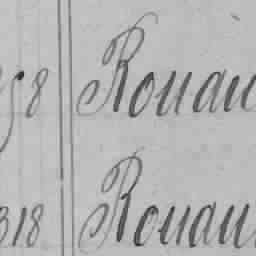 58 Rouau
318 Rouau